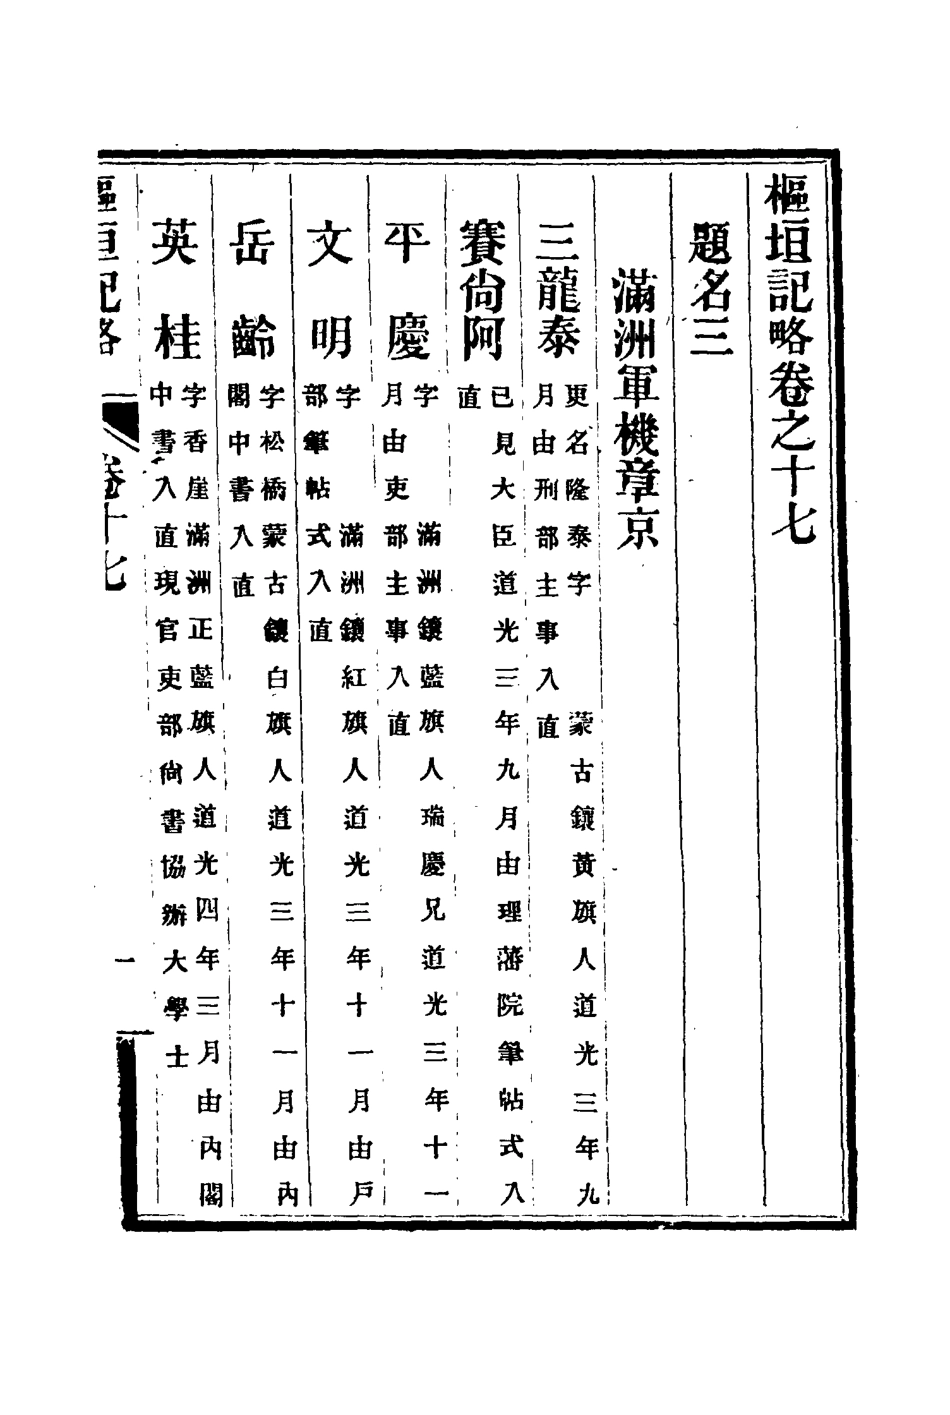 樞垣記略卷之十七
題名三
滿洲軍機章京
三龍泰 更名隆泰字 蒙古鑲黃旗人道光三年九
月由刑部主事入直
賽尙阿 已見大臣道光三年九月由理藩院筆帖式入
直
平慶 字 滿洲鑲藍旗人瑞慶兄道光三年十一
月由吏部主事入直
文明 字 滿洲鑲紅旗人道光三年十一月由戶
部筆帖式入直
岳齡 字松橋蒙古鑲白旗人道光三年十一月由內
閣中書入直
英桂 字香崖滿洲正藍旗人道光四年三月由內閣
中書入直現官吏部尙書協辦大學士
樞垣記略 卷十七 一